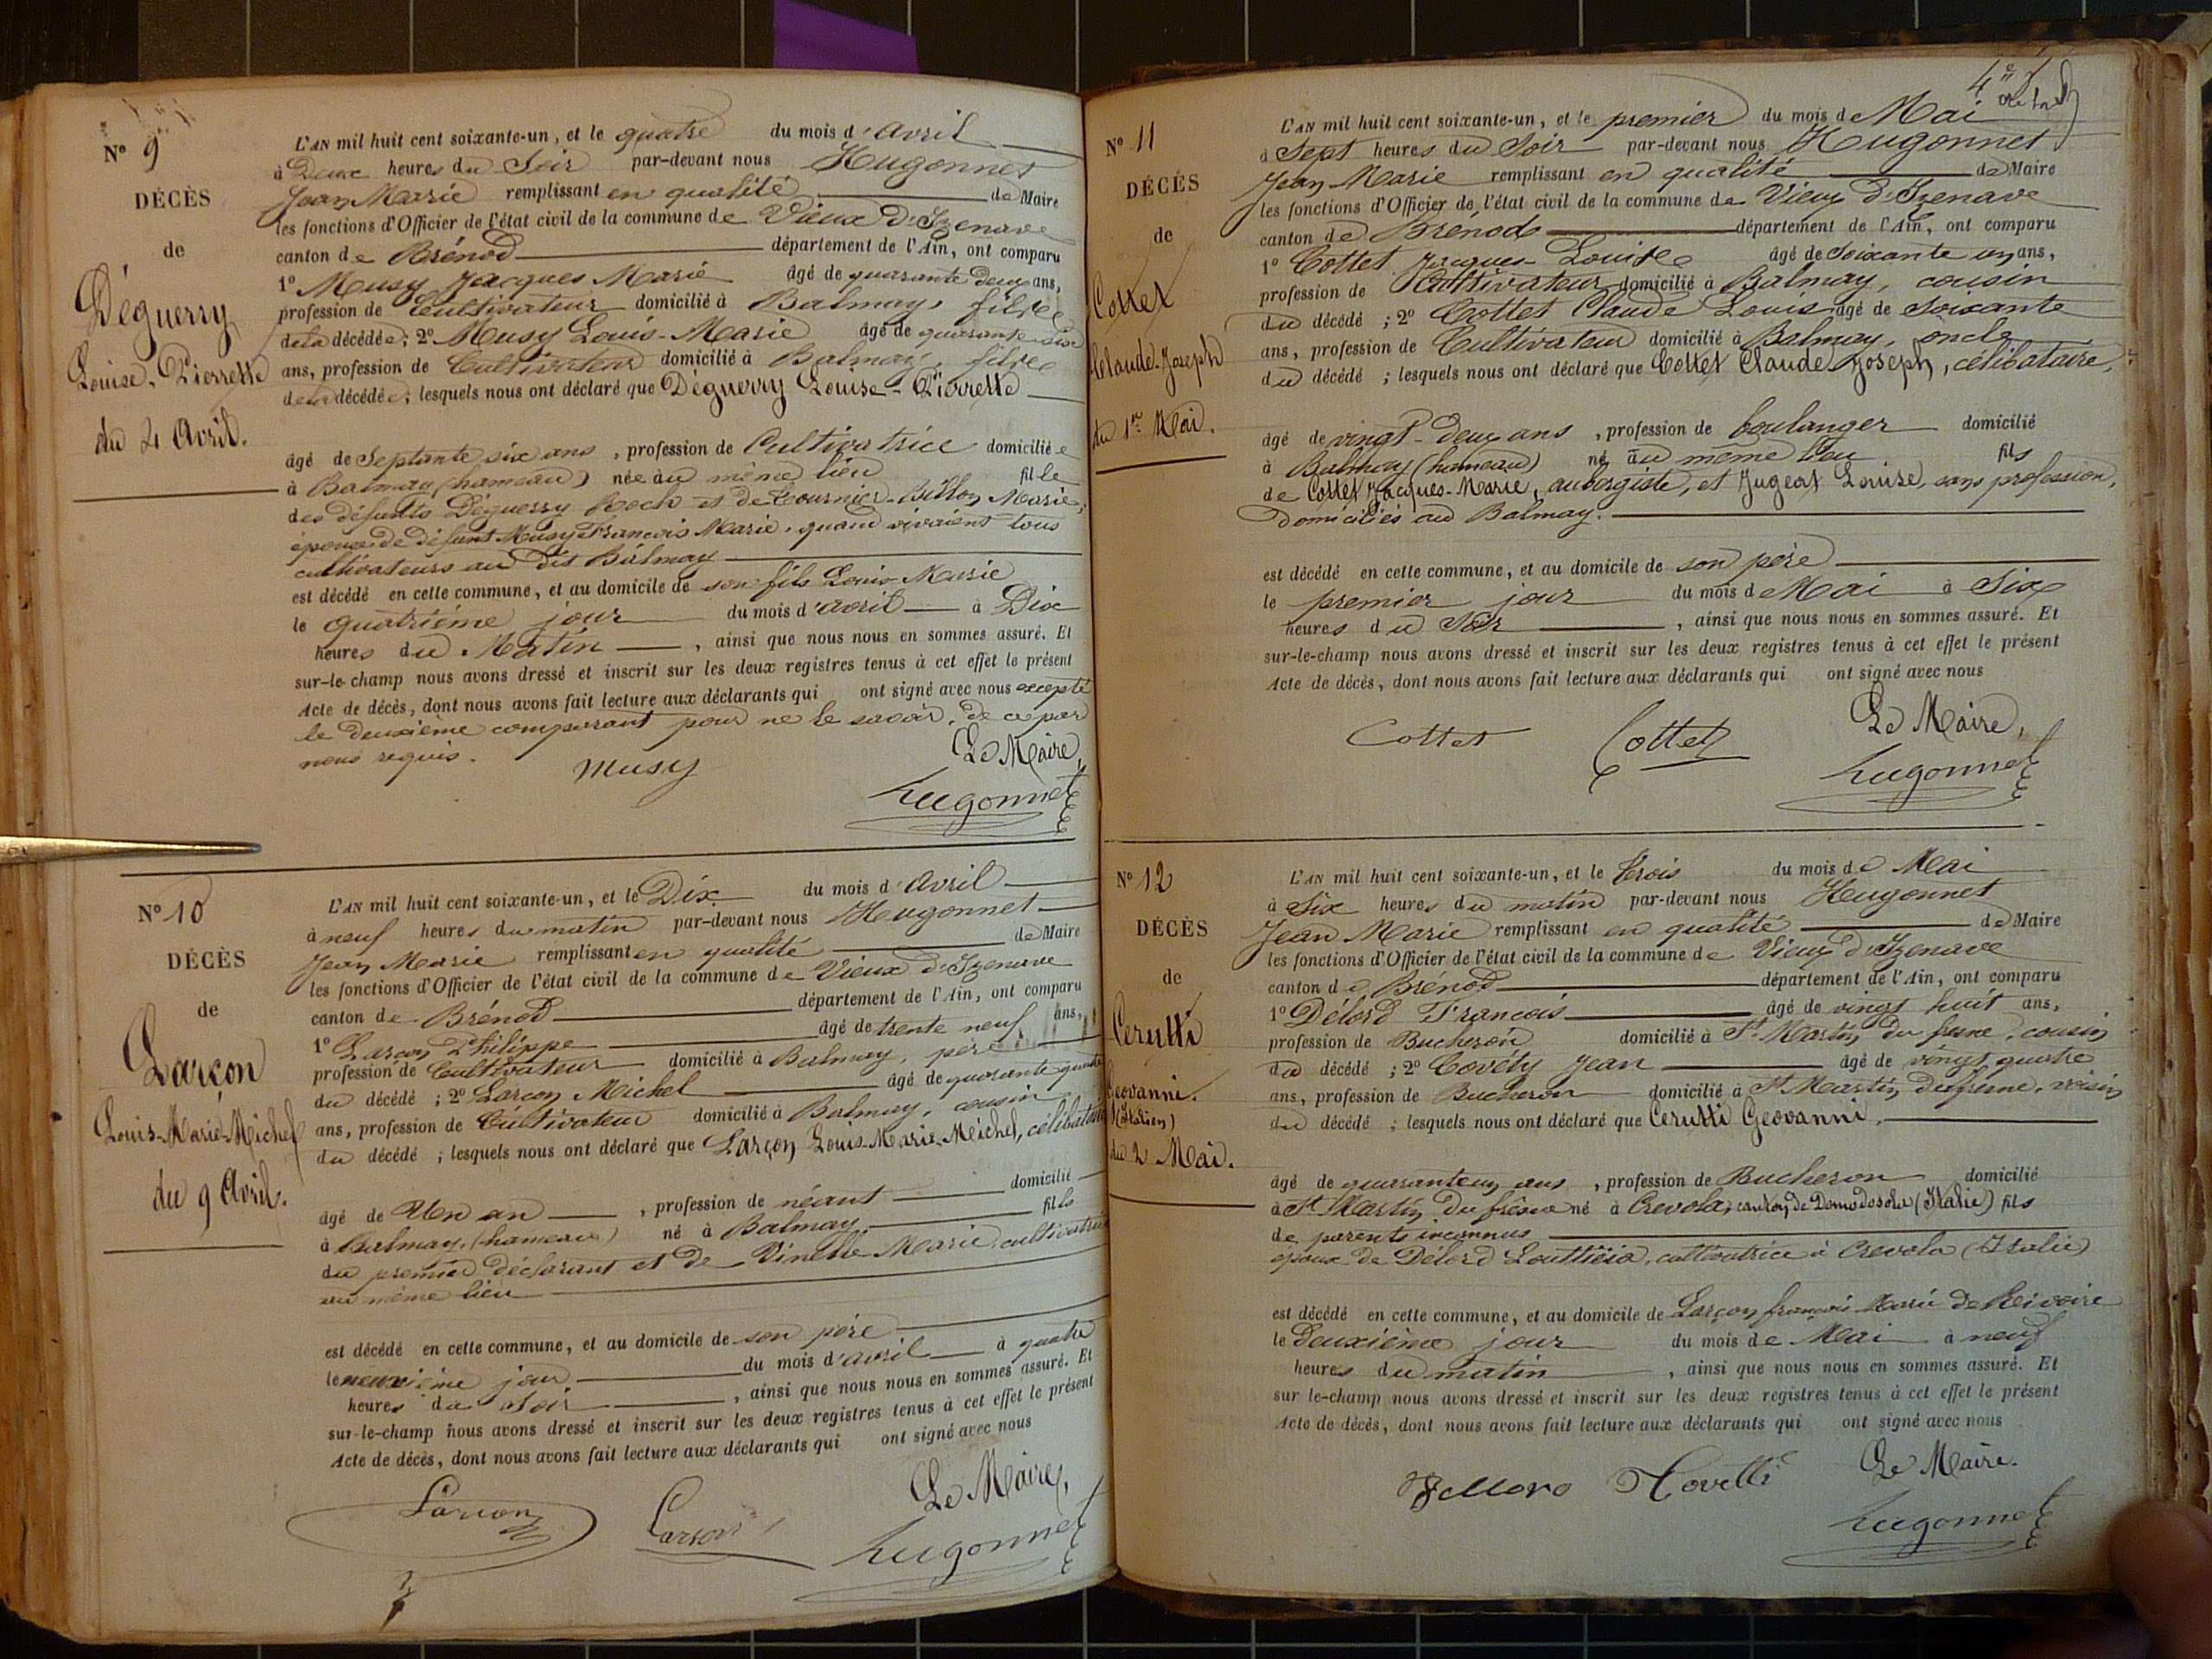 Nº 9
DÉCÈS
de
Déguerry
Louise-Pierrette
du 4 Avril.
L'AN mil huit cent soixante-un, et le quatre du mois d'Avril
à Deux heures du Soir par-devant nous Hugonnet
Jean Marie remplissant en qualité de Maire
les fonctions d'Officier de l'état civil de la commune de Vieux d'Izenave
canton de Brénod département de l'Ain, ont comparu
1º Musy Jacques Marie âgé de quarante deux ans,
profession de Cultivateur domicilié à Balmay, fils
de la décédée; 2º Musy Louis-Marie âgé de quarante six
ans, profession de Cultivateur domicilié à Balmay, fils
de la décédée; lesquels nous ont déclaré que Déguerry Louise-Pierrette
âgé de Septante six ans, profession de Cultivatrice domiciliée
à Balmay (hameau) née au même lieu fille
des défunts Déguerry Roch et de Tournier-Billon Marie,
épouse de défunt Musy François Marie, quand vivaient tous
cultivateurs au dit Balmay
est décédé en cette commune, et au domicile de son fils Louis-Marie
le quatrième jour du mois d'avril à Dix
heures du Matin, ainsi que nous nous en sommes assuré. Et
sur-le-champ nous avons dressé et inscrit sur les deux registres tenus à cet effet le présent
Acte de décès, dont nous avons fait lecture aux déclarants qui ont signé avec nous excepté
le deuxième comparant pour ne le savoir, de ce par
nous requis.
Le Maire,
Musy
Hugonnet
Nº 10
DÉCÈS
de
Larçon
Louis-Marie-Michel
du 9 Avril.
L'AN mil huit cent soixante-un, et le Dix du mois d'Avril
à neuf heures du matin par-devant nous Hugonnet
Jean Marie remplissant en qualité de Maire
les fonctions d'Officier de l'état civil de la commune de Vieux d'Izenave
canton de Brénod département de l'Ain, ont comparu
1º Larçon Philippe âgé de trente neuf ans,
profession de Cultivateur domicilié à Balmay, père
du décédé; 2º Larçon Michel âgé de quarante quatre
ans, profession de Cultivateur domicilié à Balmay, cousin
du décédé; lesquels nous ont déclaré que Larçon Louis-Marie-Michel, célibataire
âgé de Un an, profession de néant domicilié
à Balmay (hameau) né à Balmay fils
du premier déclarant et de Marie cultivatrice
au même lieu
est décédé en cette commune, et au domicile de son père
le neuvième jour du mois d'avril à quatre
heures du Soir, ainsi que nous nous en sommes assuré. Et
sur-le-champ nous avons dressé et inscrit sur les deux registres tenus à cet effet le présent
Acte de décès, dont nous avons fait lecture aux déclarants qui ont signé avec nous
Le Maire,
Larçon
Larçon
Hugonnet
Nº 11
DÉCÈS
de
Cottet
Claude-Joseph
du 1er Mai.
L'AN mil huit cent soixante-un, et le premier du mois de Mai
à Sept heures du Soir par-devant nous Hugonnet
Jean Marie remplissant en qualité de Maire
les fonctions d'Officier de l'état civil de la commune de Vieux d'Izenave
canton de Brénod département de l'Ain, ont comparu
1º Cottet Jacques-Louis âgé de Soixante un ans,
profession de Cultivateur domicilié à Balmay, cousin
du décédé; 2º Cottet Claude Louis âgé de Soixante
ans, profession de Cultivateur domicilié à Balmay, oncle
du décédé; lesquels nous ont déclaré que Cottet Claude Joseph, célibataire,
âgé de vingt-deux ans, profession de boulanger domicilié
à Balmay (hameau) né au même lieu fils
de Cottet Jacques-Marie, aubergiste, et Jugeat Louise, sans profession,
Domiciliés au Balmay.
est décédé en cette commune, et au domicile de son père
le premier jour du mois de Mai à Six
heures du Soir, ainsi que nous nous en sommes assuré. Et
sur-le-champ nous avons dressé et inscrit sur les deux registres tenus à cet effet le présent
Acte de décès, dont nous avons fait lecture aux déclarants qui ont signé avec nous
Le Maire,
Cottet
Cottet
Hugonnet
Nº 12
DÉCÈS
de
Cerutti
Geovanni.
(Italien)
du 2 Mai.
L'AN mil huit cent soixante-un, et le trois du mois de Mai
à Six heures du matin par-devant nous Hugonnet
Jean Marie remplissant en qualité de Maire
les fonctions d'Officier de l'état civil de la commune de Vieux d'Izenave
canton de Brénod département de l'Ain, ont comparu
1º Délord François âgé de vingt huit ans,
profession de Bucheron domicilié à St Martin du frene, cousin
du décédé; 2º Covéty Jean âgé de vingt quatre
ans, profession de Bucheron domicilié à St Martin du frene, voisin
du décédé; lesquels nous ont déclaré que Cerutti Geovanni,
âgé de quarante un ans, profession de Bucheron domicilié
à St Martin du frêne né à Crevola, canton de Domodosola (Italie) fils
de parents inconnus
époux de Délord cultivatrice à Crevola (Italie)
est décédé en cette commune, et au domicile de Larçon françois Marie de Rivoire
le Deuxième jour du mois de Mai à neuf
heures du matin, ainsi que nous nous en sommes assuré. Et
sur le-champ nous avons dressé et inscrit sur les deux registres tenus à cet effet le présent
Acte de décès, dont nous avons fait lecture aux déclarants qui ont signé avec nous
Le Maire.
Covetti
Hugonnet